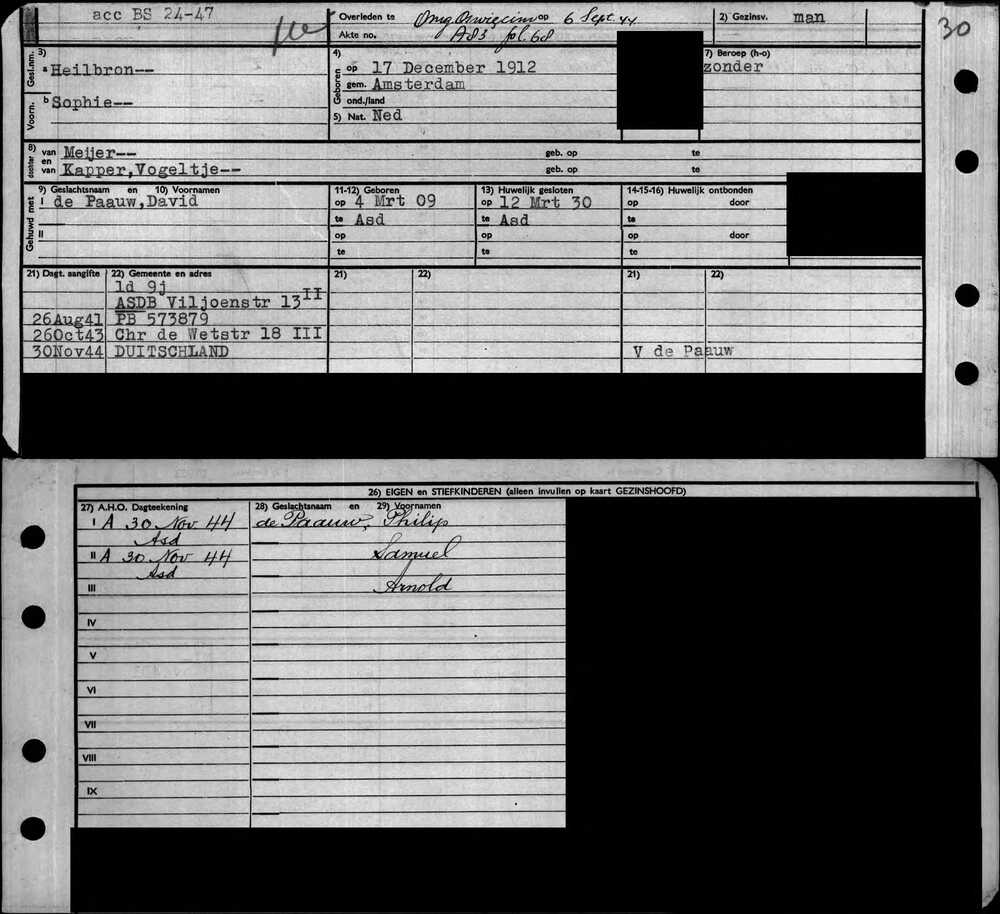 acc BS 24-47
Overleden te Omg. Oswiecim op 6 Sept. 44
Akte no. A83 fol. 68
2) Gezinsv. man
30
Gesl.nm. 3) a Heilbron--
Voorn. b Sophie--
4) Geboren op 17 December 1912
gem. Amsterdam
ond./land
5) Nat. Ned
7) Beroep (h-o)
zonder
8) dochter van Meijer-- geb. op te
en van Kapper,Vogeltje-- geb. op te
9) Geslachtsnaam en 10) Voornamen 11-12) Geboren 13) Huwelijk gesloten 14-15-16) Huwelijk ontbonden
Gehuwd met I de Paauw,David op 4 Mrt 09 op 12 Mrt 30 op door
te Asd te Asd te
II op op op door
te te te
21) Dagt. aangifte 22) Gemeente en adres 21) 22) 21) 22)
ld 9j
ASDB Viljoenstr 13 II
26Aug41 PB 573879
26Oct43 Chr de Wetstr 18 III
30Nov44 DUITSCHLAND V de Paauw
26) EIGEN en STIEFKINDEREN (alleen invullen op kaart GEZINSHOOFD)
27) A.H.O. Dagteekening 28) Geslachtsnaam en 29) Voornamen
I A 30 Nov 44 de Paauw, Philip
Asd
II A 30 Nov 44 Samuel
Asd
III Arnold
IV
V
VI
VII
VIII
IX